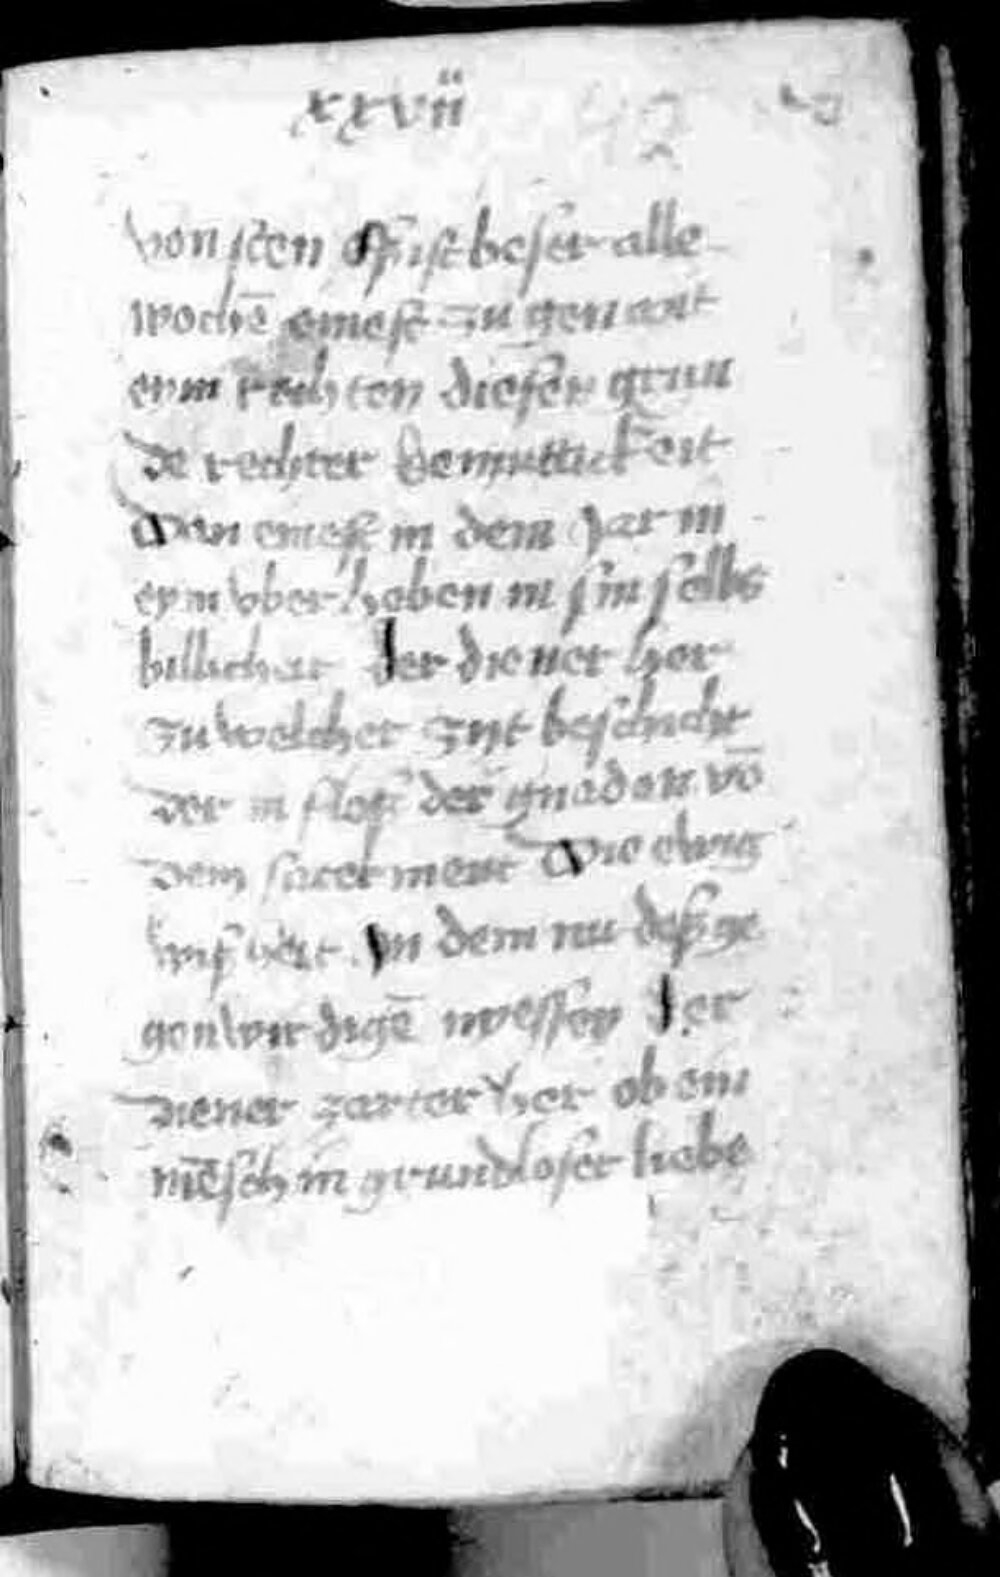 xxvii
von sten Es ist beser alle
wochē emest zu gen mit
eym rechten diesen grun
de rechter demuttickeit
Dan emest in dem Jar in
eym vber haben in sin selbs
billichait Der diener Her
zu welcher zyt beschicht
der in flosß der gnaden vō
dem sacerment Die ewig
wißheit In dem nu deß ge
genwirdigē niessen Der
diener zarter Her ob eim
mēsch in grundloser liebe